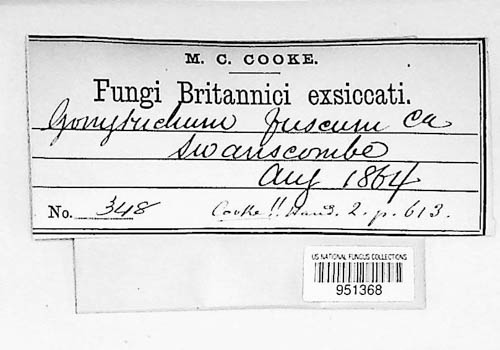 M. C. COOKE.
Fungi Britannici exsiccati.
Gonytrichum fuscum Ca
Swanscombe
Aug 1864
No. 348 Cooke!! Hand. 2. p. 613.
US NATIONAL FUNGUS COLLECTIONS
951368